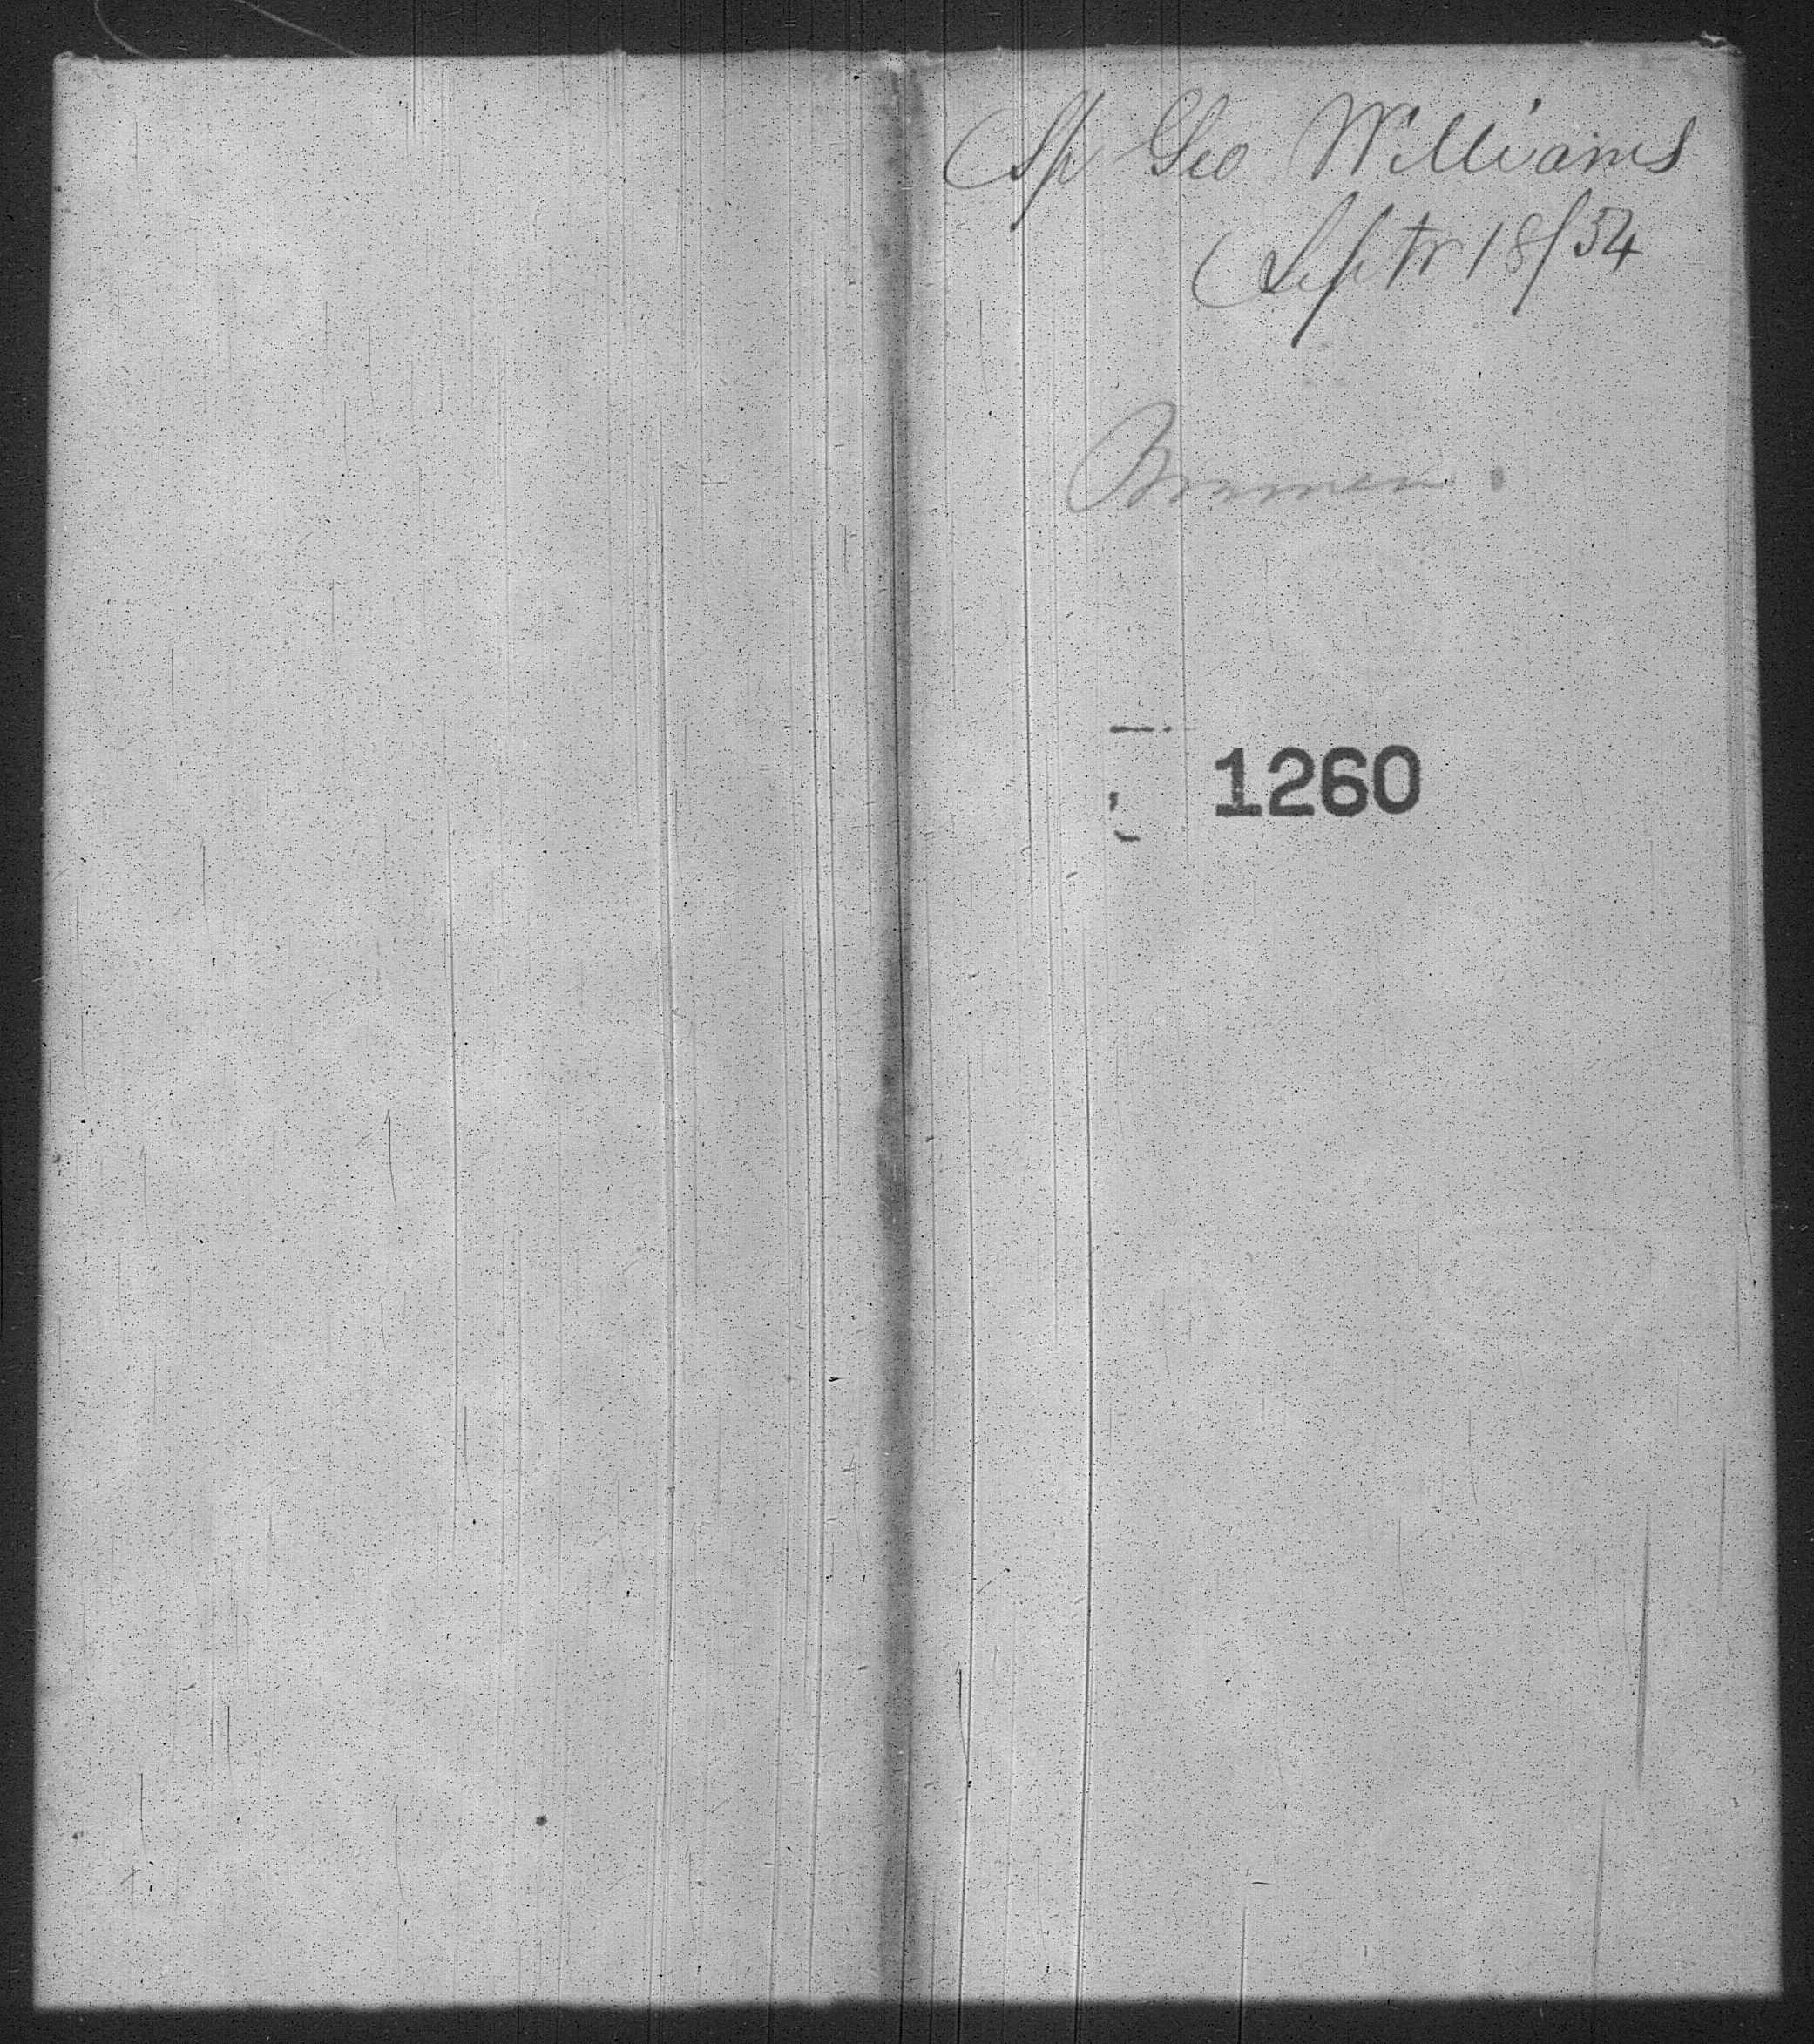 Sp Geo Williams
Septr 18/54
Bremen.
1260